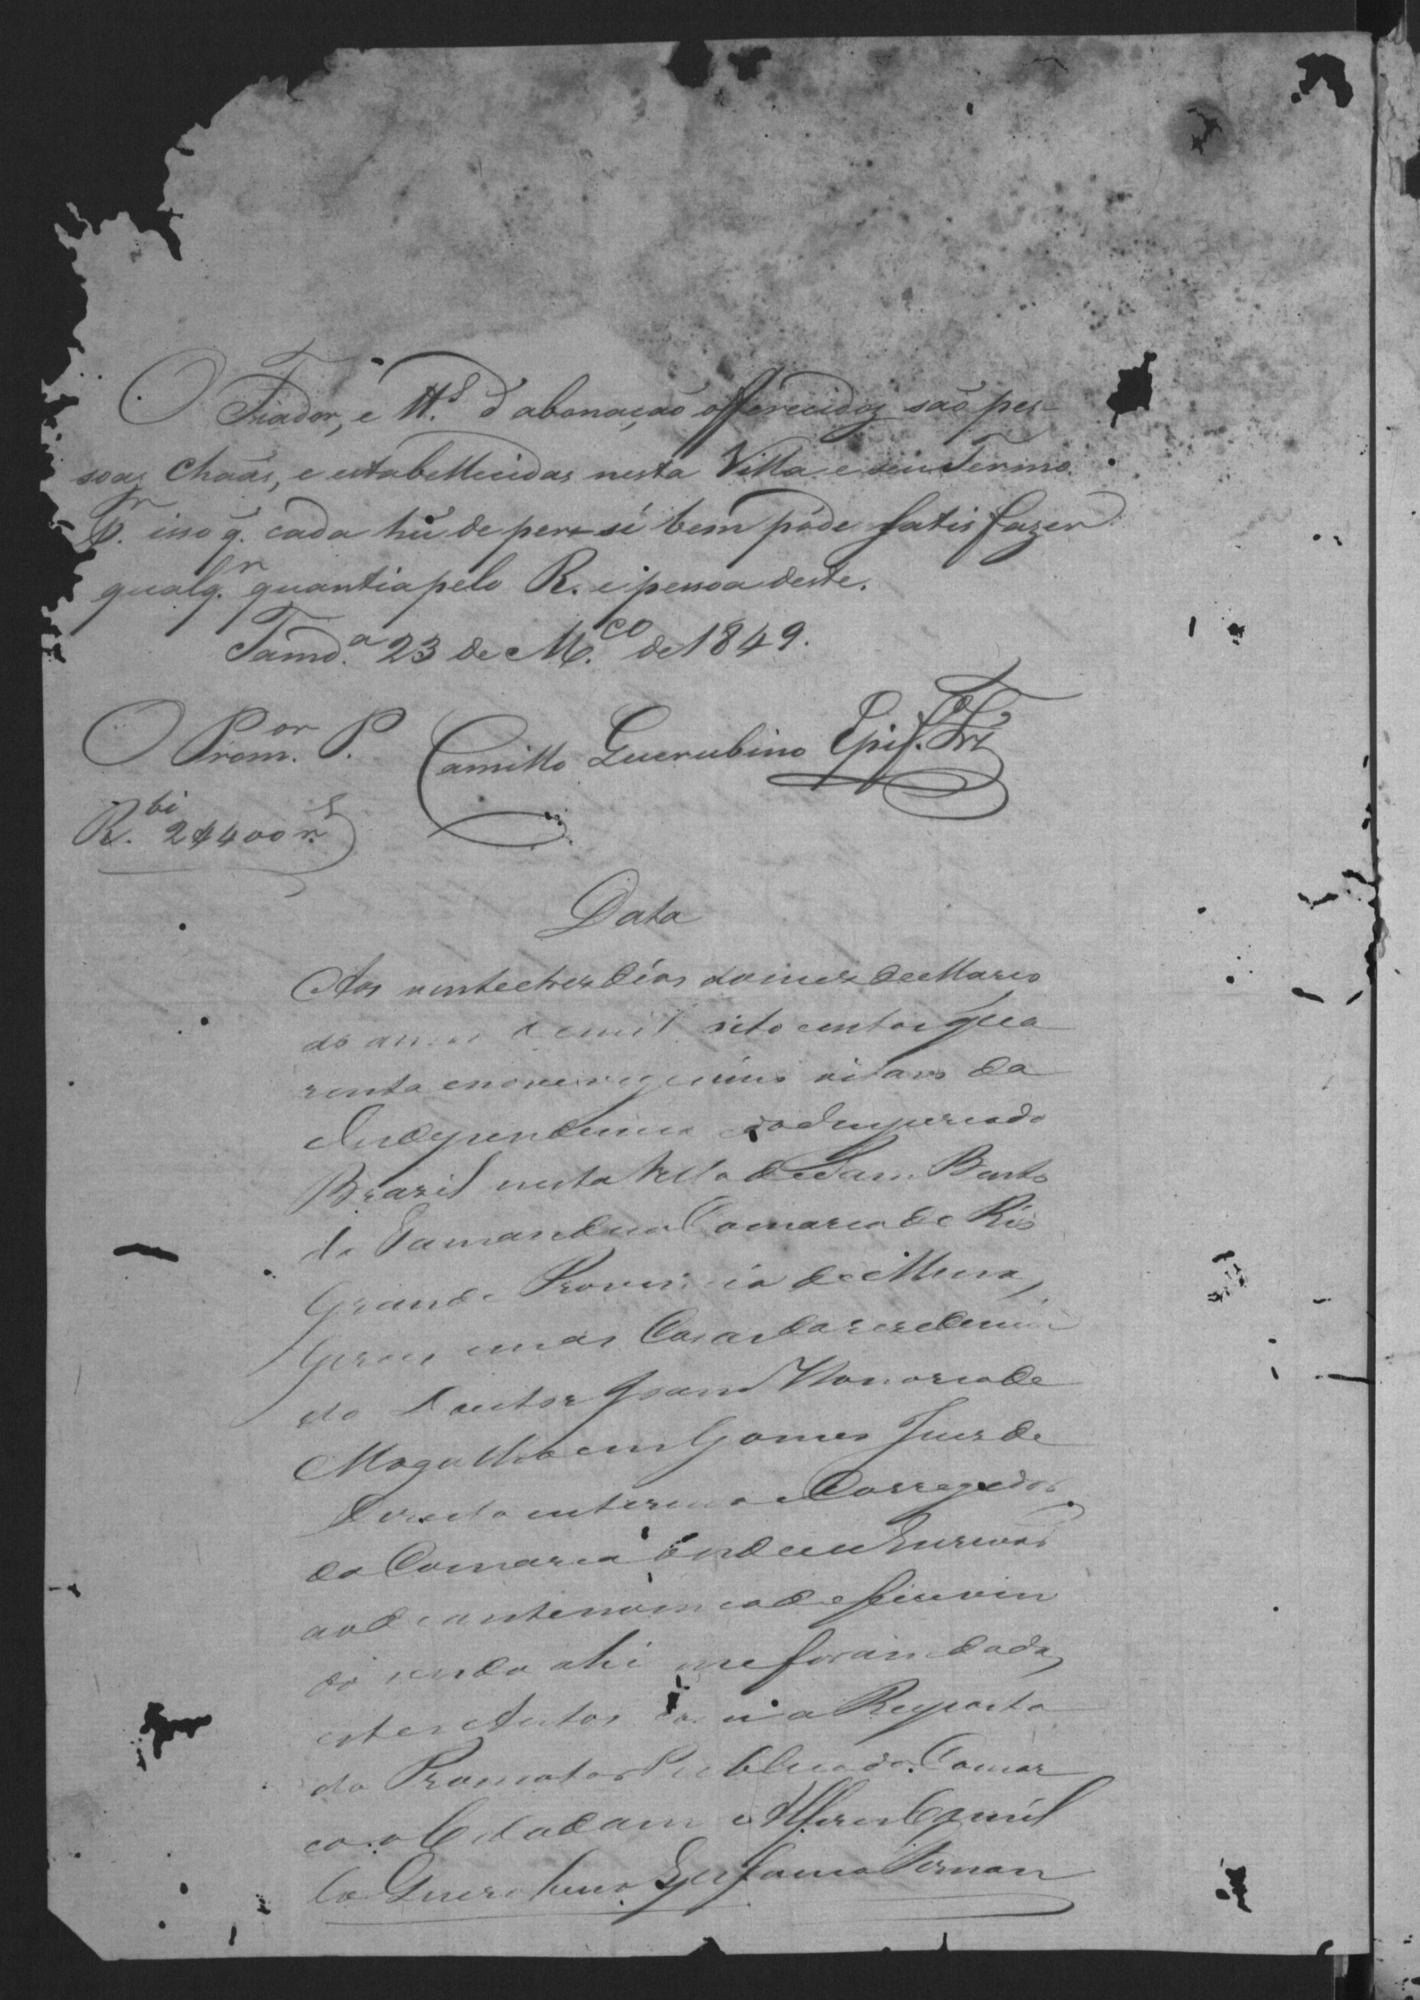 O Fiador, e tt.s d'abonação offerecidos são pes-
soas Chaãs, e estabellecidas nesta Villa e seu Termo
P.r isso q. cada hũ de per si bem póde satisfazer
qualq.r quantia pelo R. e pessoa deste.
Tamd.a 23 de M.co de 1849.
O Prom.or P. Camillo Guerubino Epif. Frz
R.bi 2$400 r.s
Data
Aos vinte e tres dias do mez de Marco
do anno de mil oito centos e qua
renta e nove vigecimo oitavo da
Independencia e do Imperio do
Brazil nesta Villa de Sam Bento
do Tamandua Comarca do Rio
Grande Provincia de Minas
Geraes em as Casas da residencia
do Doutor Joam Honorio de
Magalhaens Gomes Juiz de
Direito interino e Corregedor
da Comarca onde eu Escrivão
ao diante nomeado e fui vin
do sendo ahi me foram dados
estes Autos com a Reposta
do Promotor Publico da Comar
ca o Cidadam e Alferes Camil
lo Guerubino Epifanio Fernan